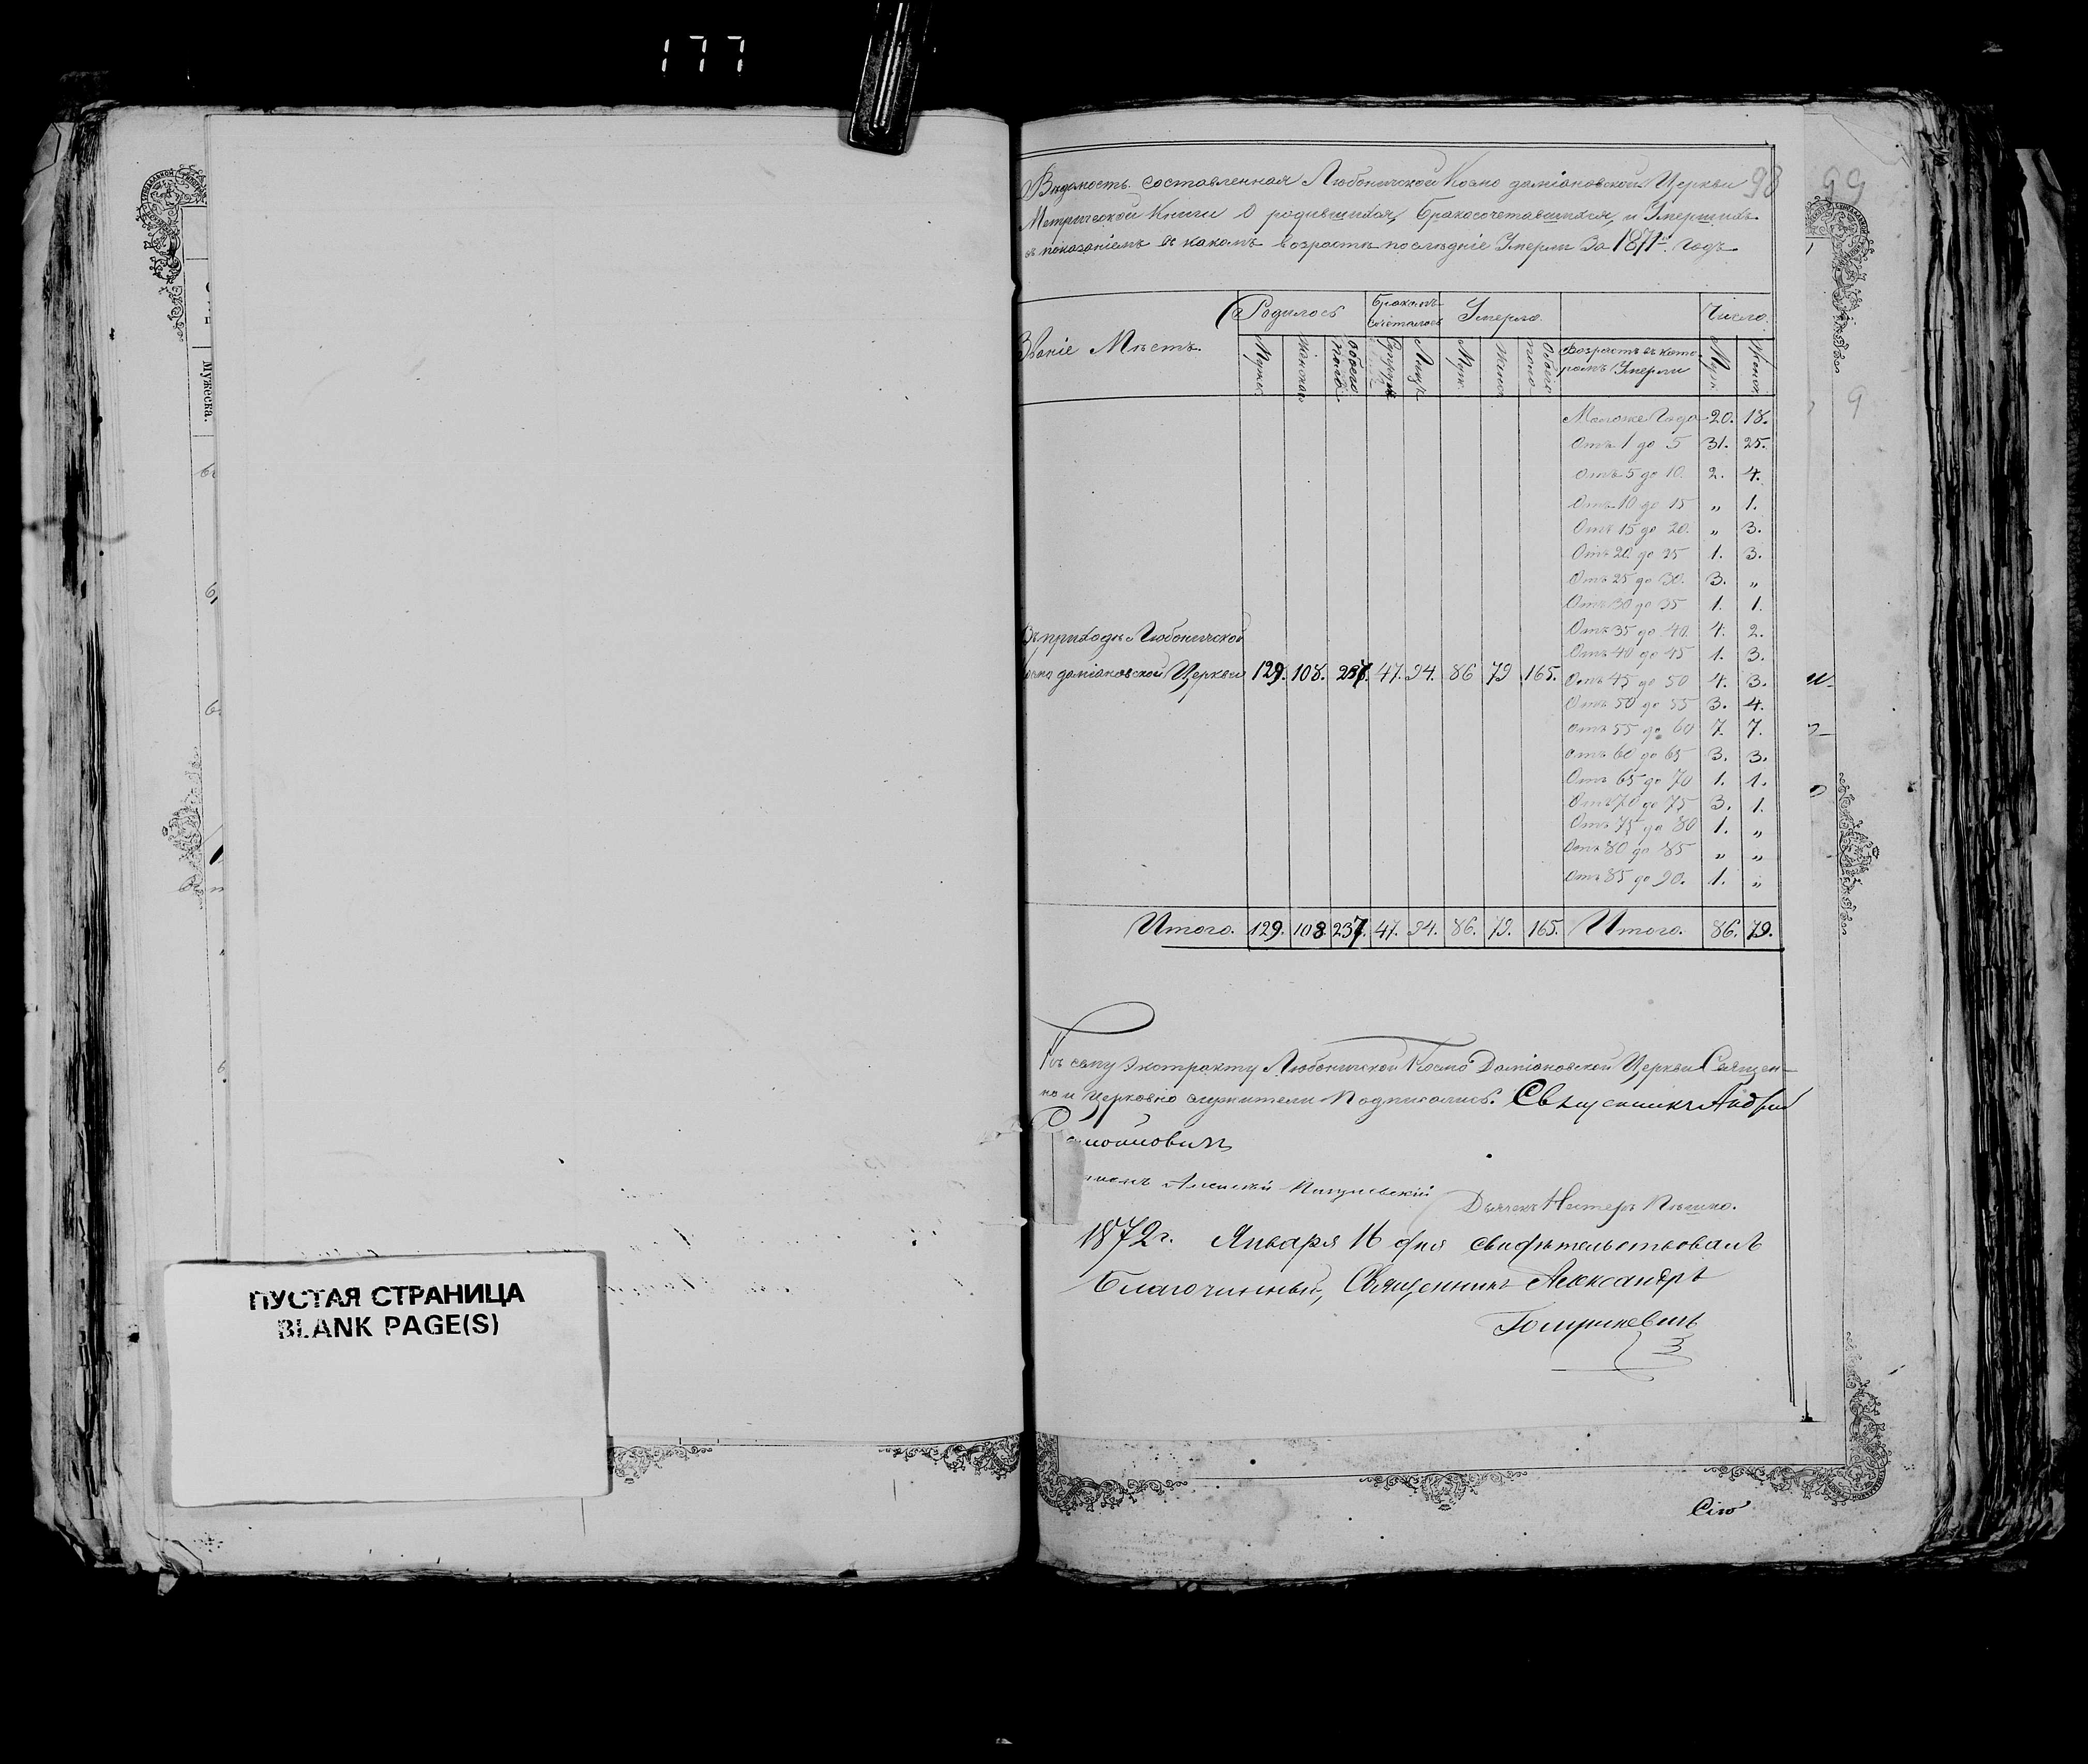 177
Мужеска.
ПУСТАЯ СТРАНИЦА
BLANK PAGE(S)
98 99
Вѣдомость составленная Любоничской Космо даміановской Церкви
Метрической Книги о родившихся, бракосочетавшихся, и Умершихъ
съ показаніемъ въ какомъ возрастѣ послѣдніе Умерли за 1871й годъ
9
Званіе Мѣстъ. Родилось Бракомъ сочеталось Умерло. Число.
Мужес. Женскаго Обоего пола Супруж. Лицъ Муж. Женс. Обоего пола Возрастъ въ которомъ Умерли Муж. Женс.
Моложе Года 20. 18.
Отъ 1 до 5 31. 25.
Отъ 5 до 10. 2. 4.
Отъ 10 до 15 „ 1.
Отъ 15 до 20. „ 3.
Отъ 20 до 25 1. 3.
Отъ 25 до 30. 3. „
Отъ 30 до 35 1. 1.
Отъ 35 до 40. 4. 2.
Отъ 40 до 45 1. 3.
Въ приходѣ Любоничской
Космо даміановской Церкви 129. 108. 237. 47. 94. 86 79 165. Отъ 45 до 50 4. 3.
Отъ 50 до 55 3. 4.
Отъ 55 до 60 7. 7.
Отъ 60 до 65 3. 3.
Отъ 65 до 70 1. 1.
Отъ 70 до 75 3. 1.
Отъ 75 до 80 1. „
Отъ 80 до 85 „ „
Отъ 85 до 90. 1. „
Итого. 129. 108. 237. 47. 94. 86. 79. 165. Итого. 86. 79.
Къ сему Экстракту Любоничской Космо Даміановской Церкви Священ-
но и Церковно служители Подписались. Священникъ Андрей
Дьячекъ Нестеръ
1872 г. Января 16 дня свидѣтельствовалъ
Благочинный, Священникъ Александръ
Сію